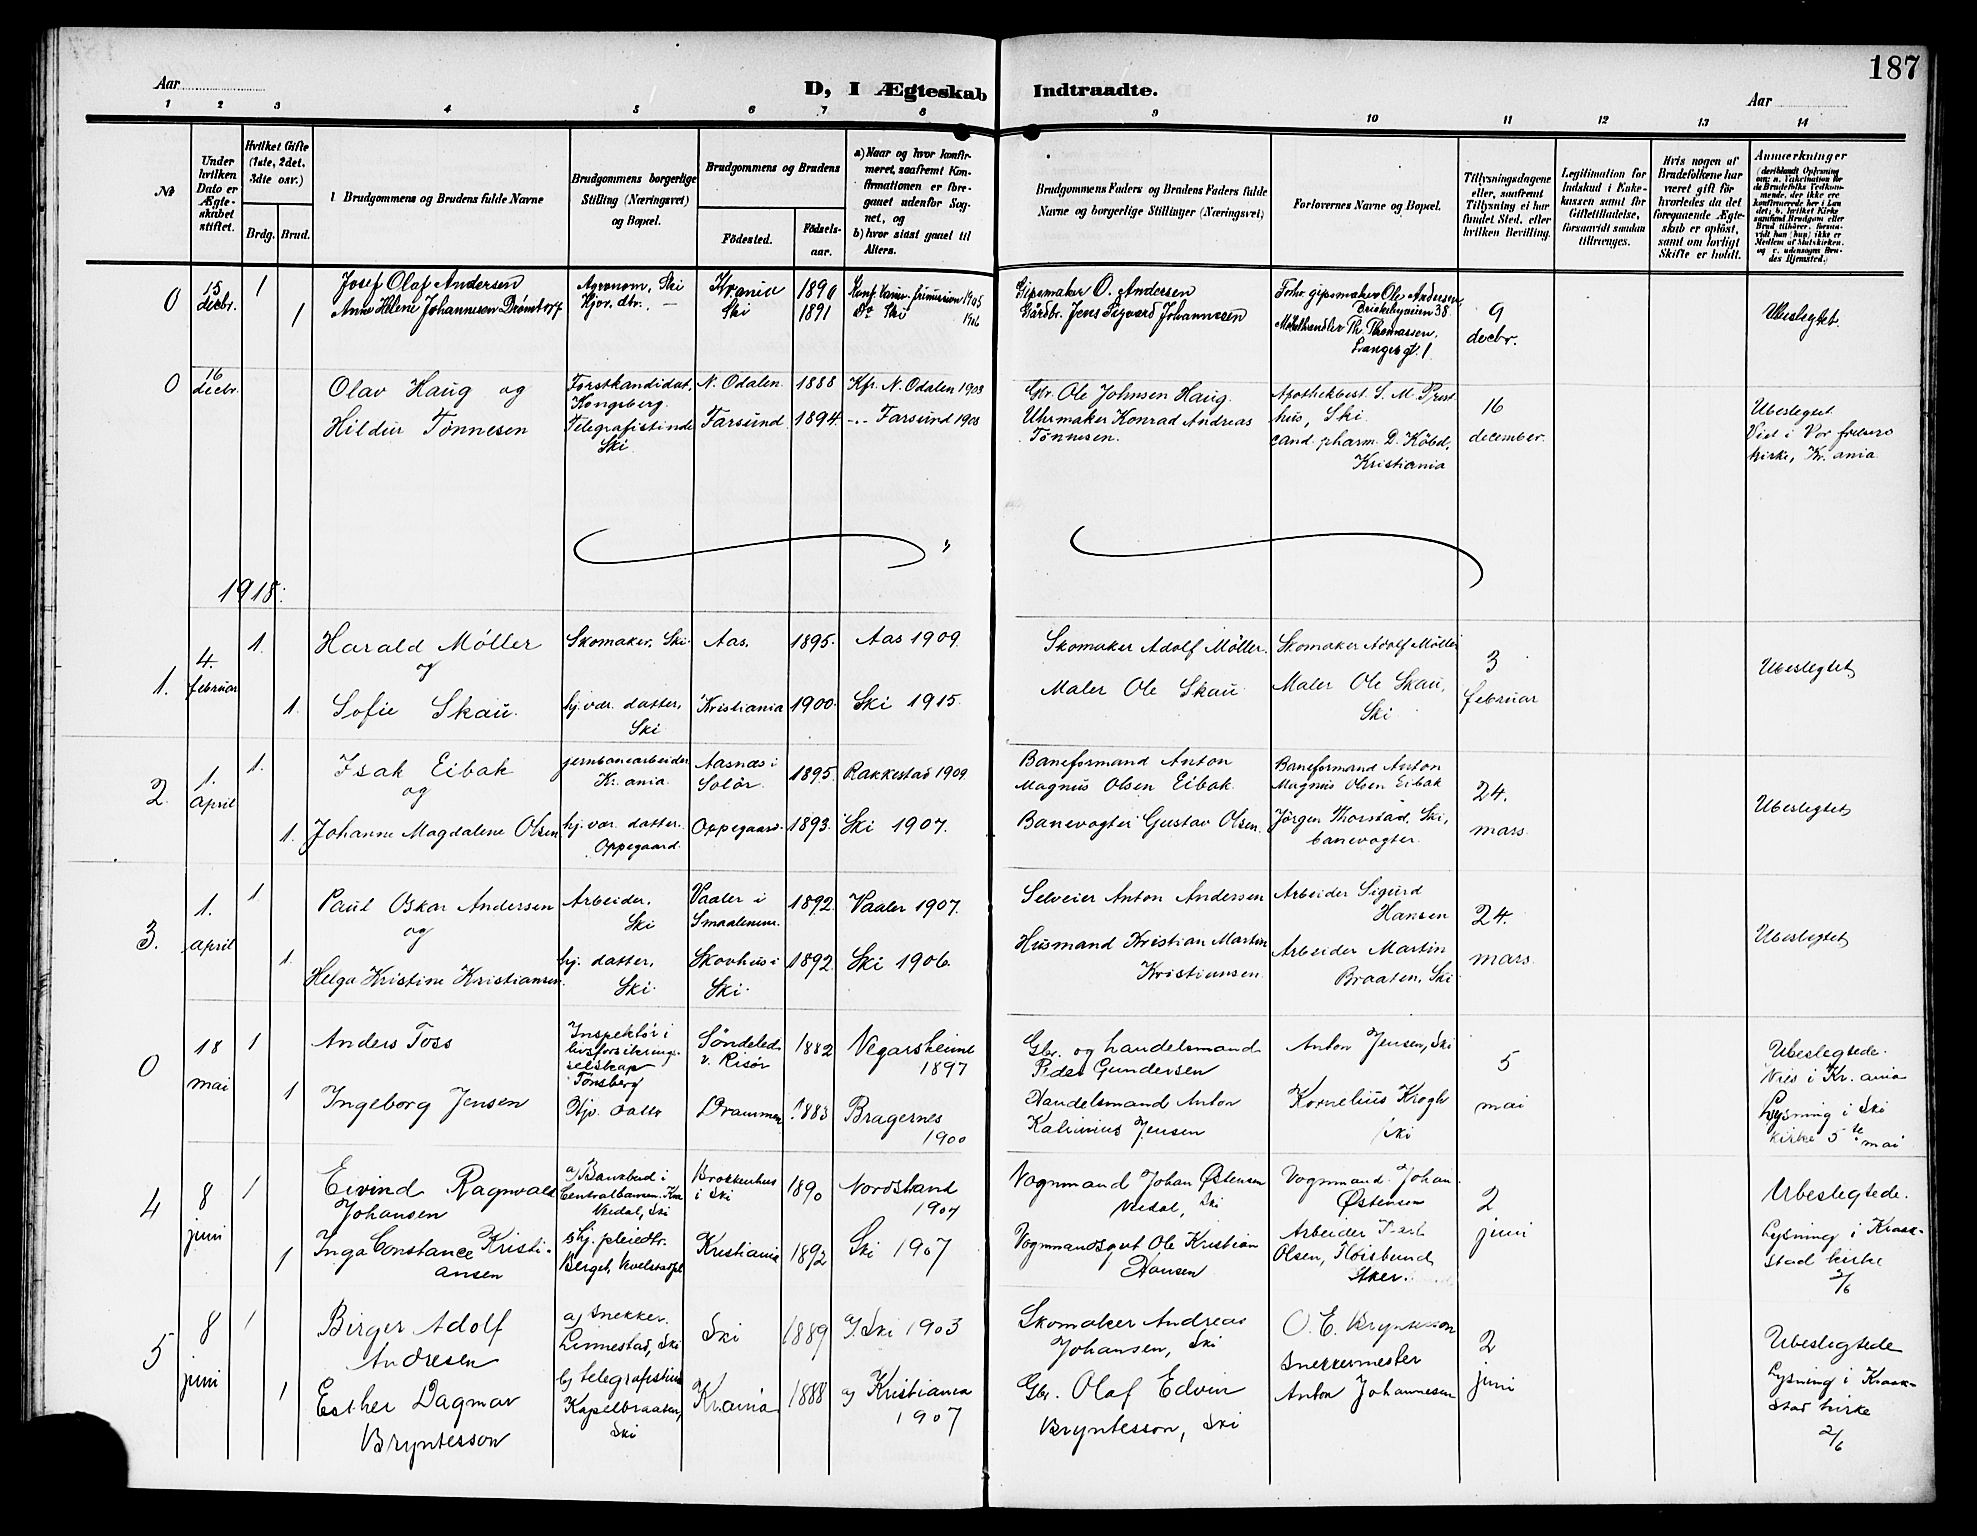 187
Aar
D, I Ægteskab Indtraadte.
Aar
1 2 3 4 5 6 7 8 9 10 11 12 13 14
No
Under hvilken Dato er Ægteskabet stiftet.
Hvilket Gifte (1ste, 2det, 3die osv.)
Brdg. Brud.
Brudgommens og Brudens fulde Navne
Brudgommens borgerlige Stilling (Næringsvei) og Bopæl.
Brudgommens og Brudens
Fødested.
Fødselsaar.
a) Naar og hvor konfirmeret, saafremt Konfirmationen er foregaaet udenfor Sognet, og
b) hvor sidst gaaet til Alters.
Brudgommens Faders og Brudens Faders fulde Navne og borgerlige Stillinger (Næringsvei)
Forlovernes Navne og Bopæl.
Tillysningsdagene eller, saafremt Tillysning ei har fundet Sted, efter hvilken Bevilling.
Legitimation for Indskud i Enkekassen samt for Giftetilladelse, forsaavidt saadan tiltrænges.
Hvis nogen af Brudefolkene har været gift før hvorledes da det foregaaende Ægteskab er opløst, samt om lovligt Skifte er holdt.
Anmerkninger
0 15 decbr. 1 Josef Olaf Andersen Agronom, Ski Kr.ania 1890 Gipsmaker O. Andersen Gipsmaker Ole Andersen, 9 decbr. Ubeslegtet.
1 Anne Helene Johannesen Drømtorp Ski 1891 Ski Gårdbr. Johannesen Thomassen, Langes gt. 1
0 16 decbr. Olav Haug og Forstkandidat, Kongsberg. N. Odalen. 1888 Kfr. N. Odalen 1903 Gbr. Ole Johnsen Haug. Apothekbest. S. M. Presthus, Ski. 16 december. Ubeslegtet
Hildur Tønnesen Telegrafistinde Ski Farsund 1894. Farsund 1908 Uhrmaker Konrad Andreas Tønnesen. cand. pharm. D. Købd, Kristiania Vied i Vor frelsers kirke, Kr.ania.
1918.
1. 4. februar 1. Harald Möller og Skomaker, Ski Aas. 1895. Aas 1909. Skomaker Adolf Möller. Skomaker Adolf Möller 3 februar Ubeslegtet
1. Sofie Skau. hj.vær. datter, Ski Kristiania 1900. Ski 1915. Maler Ole Skau Maler Ole Skau, Ski
2. 1. april 1. Isak Eibak og jernbanearbeider Kr.ania. Aasnæs i Solør. 1895. Rakkestad 1909. Baneformand Anton Magnus Olsen Eibak. Baneformand Anton Magnus Olsen Eibak 24. mars. Ubeslegtet
1. Johanne Magdalene Olsen hj.vær. datter. Oppegaard. Oppegaard. 1893. Ski 1907. Banevogter Gustav Olsen. Jörgen Thorstad, Ski, banevogter.
3. 1. april 1 Paul Oskar Andersen og Arbeider, Ski Vaaler i Smaalenene. 1892. Vaaler 1907. Selveier Anton Andersen Arbeider Sigurd Hansen 24. mars Ubeslegtet
1. Helga Kristine Kristiansen. hj. datter, Ski. Skovhus i Ski. 1892. Ski 1906. Husmand Kristian Martin Kristiansen. Arbeider Martin Braaten, Ski.
0 18 mai 1 Anders Toss Inspektör i livsforsikringsselskap Tønsberg Söndeled v. Risør 1882 Vegarsheiene 1897 Gbr. og handelsmand Peder Gundersen Anton Jensen, Ski 5 mai Ubeslegtede.
1 Ingeborg Jensen Hjv. datter Drammen 1883 Bragernes 1900 Handelsmand Anton Jensen Kornelius Krogh Ski Vies i Kr.ania Lysning i Ski kirke 5te mai
4 8 juni 1 Eivind Ragnvald Johansen a) Bankbud i Centralbanken. Ski Brokkenhus i Ski 1890 Nordstrand 1904 Vognmand Johan Østensen Ski Vognmand Johan Østensen 2 juni Ubeslegtede.
1 Inga Constance Kristiansen b) hj. pleiedtr. Kristiania 1892 Ski 1907 Vognmandsgut Ole Kristian Hansen Arbeider Karl Olsen, Fløisbund Aker. Lysning i Kraakstad kirke 2/6
5 8 juni 1 Birger Adolf Andresen a) Snekker. Linnestad, Ski Ski 1889 Ski 1903 Skomaker Andreas Johansen, Ski O. E. Bryntesson Snekkermester 2 juni Ubeslegtede
1 Esther Dagmar Bryntesson b) telegrafistinde Kapelbraaten, Ski Kr.ania 1888 Kristiania 1907 Gbr. Olaf Edvin Bryntesson, Ski Anton Johannesen Lysning i Kraakstad kirke 2/6